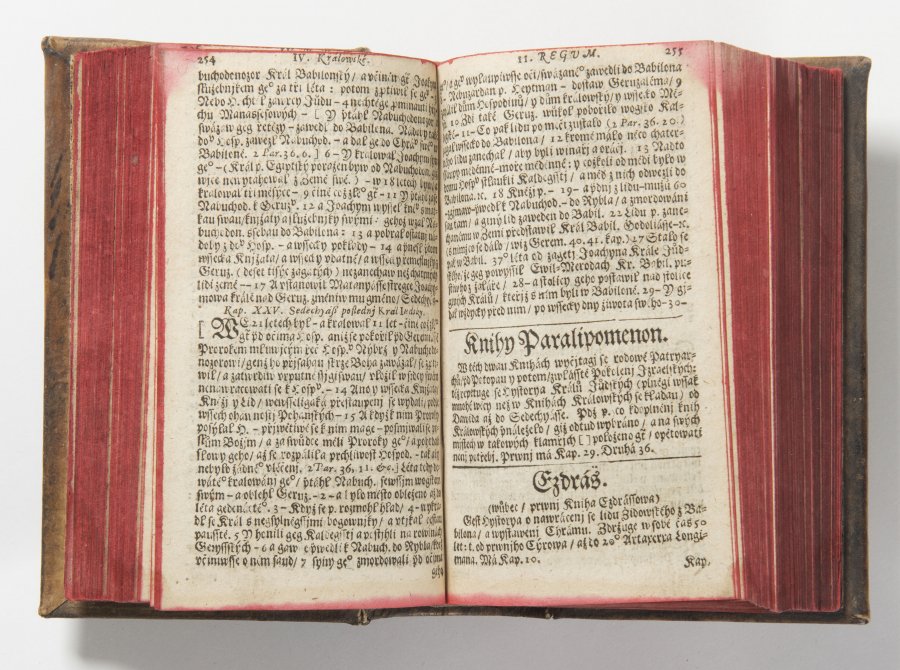 254 IV. Kralowské.
buchodonozor Král Babilonský / a včiněn gest Joachym
služebnjkem geº za tři léta: potom zprotiwil se geº -
Nebo H. chtěl zawrcy Júdu - 4 nechtěge prominauti
chu Manassesowých - [ Y přitáhl Nabuchodonozor a
swázaw geg řetězy - zawedl do Babilona. Nádoby také
do Hosp. zawezl Nabuchod. - a dal ge do Chrámu sweº w
Babiloně. 2 Par. 36. 6. ] 6 - Y kralowal Joachym syn
geº - ( Král p. Egiptský poražen byw od Nabuchodon.
wjce newytahowal z země swé. ) - w 18 letech byl
kralowal tři měsýce - 9 čině což zléº - 11 Y přitáhl
Nabuchod. k Geruz. 12 a Joachym wyssel k němu s mat-
kau swau / knjžaty a služebnjky swými: gehož wzal Na-
buchodon. s sebau do Babilona: 13 a pobral ostatnj ná-
doby z do Hosp. - a wssecky poklady - 14 a přenesl
wssecka Knjžata / a wssecky vdatné / a wssecky řemeslnjky
Geruz. ( deset tisýc zagatých ) nezanechaw než chaterných
lidí země - 17 A vstanowil Mattanyásse strýce Joachy-
mowa králé nad Geruz. změniw mu gméno / Sedechyáss.
Kap. XXV. Sedechyáss poslednj Král Júdský.
[ We 21 letech byl - a kralowal 11 let - čině což zléº
gest před očima Hosp. aniž se pokořil před Geremiássem
Prorokem mluwjcým řeč Hospº. Nýbrž y Nabuchodo-
nozorowi / genž ho přjsahau skrze Boha zawázal / se zpro-
tiwil / a zatwrdiw vrputně ssygi swau / vložil w srdcy swém
nenawracowati se k Hospº. - 14 Ano y wssecka Knjžata /
Kněžj y Lid / wensseligaká přestaupenj se wydali / podlé
wssech ohawnostj Pohanských - 15 A když k nim Proroky
posýlal H. - přjwětiwě se k nim mage - posmjwali se po-
slům Božjm / a za swůdce měli Proroky geº / a pohrdali
slowy geho / až se rozpálila prchliwost Hospod. - tak aby
nebylo žádnéº vléčenj. 2 Par. 36. 11. &c. ] Léta tedy de-
wátéº kralowánj geº / přitáhl Nabuch. se wssjm wogskem
swým - a oblehl Geruz. - 2 - a bylo město obleženo až do
léta gedenáctéº. 3 - Když se p. rozmohl hlad / 4 - wypa-
dl se Král s negsylněgssjmi bogownjky / a vtjkal cestau
pausstě. 5 Y honili geg Kaldegsstj a postihli na rowinách
Gerysských - 6 a gaw ho wedli k Nabuch. do Rybla / kdež
včiniwsse o něm saud / 7 syny geº zmordowali před očima
geho
II. REGVM. 255
a geº wykaupiwsse oči / swázanéº zawedli do Babilona
Nebuzardan p. Heytman - dostaw Geruzaléma / 9
spálil dům Hospodinů / y dům králowský / y wssecko Mě-
sto 10 Zdi také Geruz. wůkol pobořilo wogsko Kal-
degské - 11 - Co pak lidu po meči zustalo ( 2 Par. 36. 20. )
zawedl wssecko do Babilona / 12 kromě málo něco chater-
ného lidu zanechal / aby byli winaři a oráči / 13 Nadto
slaupy měděnné - moře měděnné: y cožkoli od mědi bylo w
domu Hospº stlaukli Kaldegsstj / a měď z nich odwezli do
Babilona ꝛc. 18 Kněžj p. - 19 - a přednj z lidu - mužů 60
wzgmaw - přwedl k Nabuchod. - do Rybla / a zmordowáni
sau tam / a giný lid zaweden do Babil. 22 Lidu p. zane-
chanému w Zemi předstawil Král Babil. Hodoliásse - ꝛc.
( Co mimo to se dálo / wiz Gerem. 40. 41. kap. ) 27 Stalo se
pak w Babil. 37º léta od zagetj Joachyna Krále Júd-
ského / že geg powýssil Ewil-Merodach Kr. Babil. pu-
stiw ho z žaláře / 28 - a stolicy geho postawil nad stolice
giných Králů / kterjž s njm byli w Babiloně. 29 - Y gj-
dal wždycky před njm / po wssecky dny žiwota swého - 30 -
Knihy Paralipomenon.
W těch dwau Knihách wyčjtagj se rodowé Patryar-
chů / od Potopy y potom / zwlásstě Pokolenj Izraelských:
též wypisuge se Hystorya Králů Júdských ( plněgi wssak
mnohé wěcy než w Knihách Králowských se kladau ) od
Dawida až do Sedechyásse. Pdž p. co k doplněnj knih
Králowských přináleželo / giž odtud wybráno / a na swých
mjstech w takowých klamrjch [ ] položeno gest / opětowati
nenj potřebj. Prwnj má Kap. 29. Druhá 36.
Ezdráš.
(wůbec / prwnj Kniha Ezdrássowa)
Gest Hystorya o nawrácenj se lidu Židowského z Ba-
bilona / a wystawenj Chrámu. Zdržuge w sobě čas 50
let: t. od prwnjho Cýrowa / až do 20º Artaxerxa Longi-
mana. Má Kap. 10.
Kap.